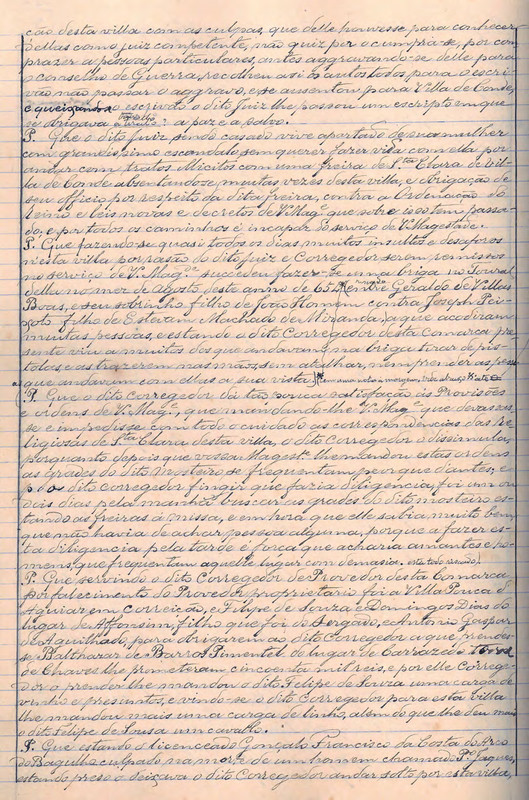 ção desta villa com as culpas, que delle houvesse para conhecer
d'ellas como juiz competente, não quiz por o cumpra-se, por com
prazer a pessoas particulares, antes aggravando-se delle para
o conselho de Guerra, recolheu a si os autos todos, para o escri
vão não passar o aggravo, e se ausentou para Villa de Conde,
e queixando-se o escrivão o dito juiz lhe passou um escripto em que
se obrigava a paz e a salvo.
P. Que o dito juiz sendo casado vive apartado de sua mulher
com grandissimo escandalo, sem querer fazer vida com ella por
andar com tratos illicitos com uma freira de S.ta Clara de Vil
la de Conde absentando-se muitas vezes desta villa, e obrigação de
seu officio por respeito da dita freira, contra a Ordenação do
reino e leis novas e decretos de V. Mag.e que sobre isso tem passa
do, e por todos os caminhos é incapaz do serviço de V. Magestade.
P. Que fazendo-se quasi todos os dias muitos insultos e desaforos
n'esta villa por rasão do dito juiz e Corregedor serem remissos
no serviço de V. Mag.e succedeu fazer-se uma briga no Toural
della no mez de Agosto deste anno de 65 entre Geraldo de Villas
Boas, e seu sobrinho filho de João Homem contra Joseph Pei
xoto filho de Estevam Machado de Miranda, a que acodiram
muitas pessoas, e estando o dito Corregedor desta comarca pre
sente viu a muitos dos que andavam na briga tirar de pis
tolas e as trazerem nas mãos, sem atalhar, nem prender as pessoas
que andavam com ellas a sua vista
P. Que o dito corregedor dá tão pouca satisfação ás Provisões
e ordens de V. Mag.e, que mandando-lhe V. Mag.e que devassas
se e impedisse com todo o cuidado as correspondencias das Re
ligiosas de S.ta Clara desta villa, o dito Corregedor o dissimula,
porquanto depois que vossa Magest.e lhe mandou estas ordens
as grades do dito mosteiro se frequentam peor que d'antes; e
o dito corregedor fingir que fazia diligencia, foi um ou
dois dias pela manhã buscar as grades do dito mosteiro es
tando as freiras á missa, e em hora que elle sabia muito bem
que não havia de achar pessoa alguma, porque a fazer es
ta diligencia pela tarde é força que acharia amantes e ho
mens, que frequentam aquelle lugar com demasia.
P. Que servindo o dito Corregedor de Provedor desta Comarca
por falecimento do Provedor proprietario foi a Villa Pouca d'
Aguiar em correição, e Filipe de Souza e Domingos Dias do
lugar de Affonsim, filho que foi do Sergado, e Antonio Gaspar
de Aguilhado, para obrigarem ao dito Corregedor a que prendes-
se Balthazar de Barros Pimentel do lugar de Carrazedo
de Chaves lhe prometeram cincoenta mil reis, e por elle Correge-
dor o prender lhe mandou o dito Felipe de Souza uma carga de
vinho e presuntos, e vindo-se o dito Corregedor para esta Villa
lhe mandou mais uma carga de linho, alem do que lhe deu mais
o dito Felipe de Sousa um cavalo.
P. Que estando o licenceado Gonçalo Francisco da Costa do Arco
do Baguilho culpado na morte de um homem chamado P.o Vaques,
estando preso o deixava o dito Corregedor andar solto por esta villa,